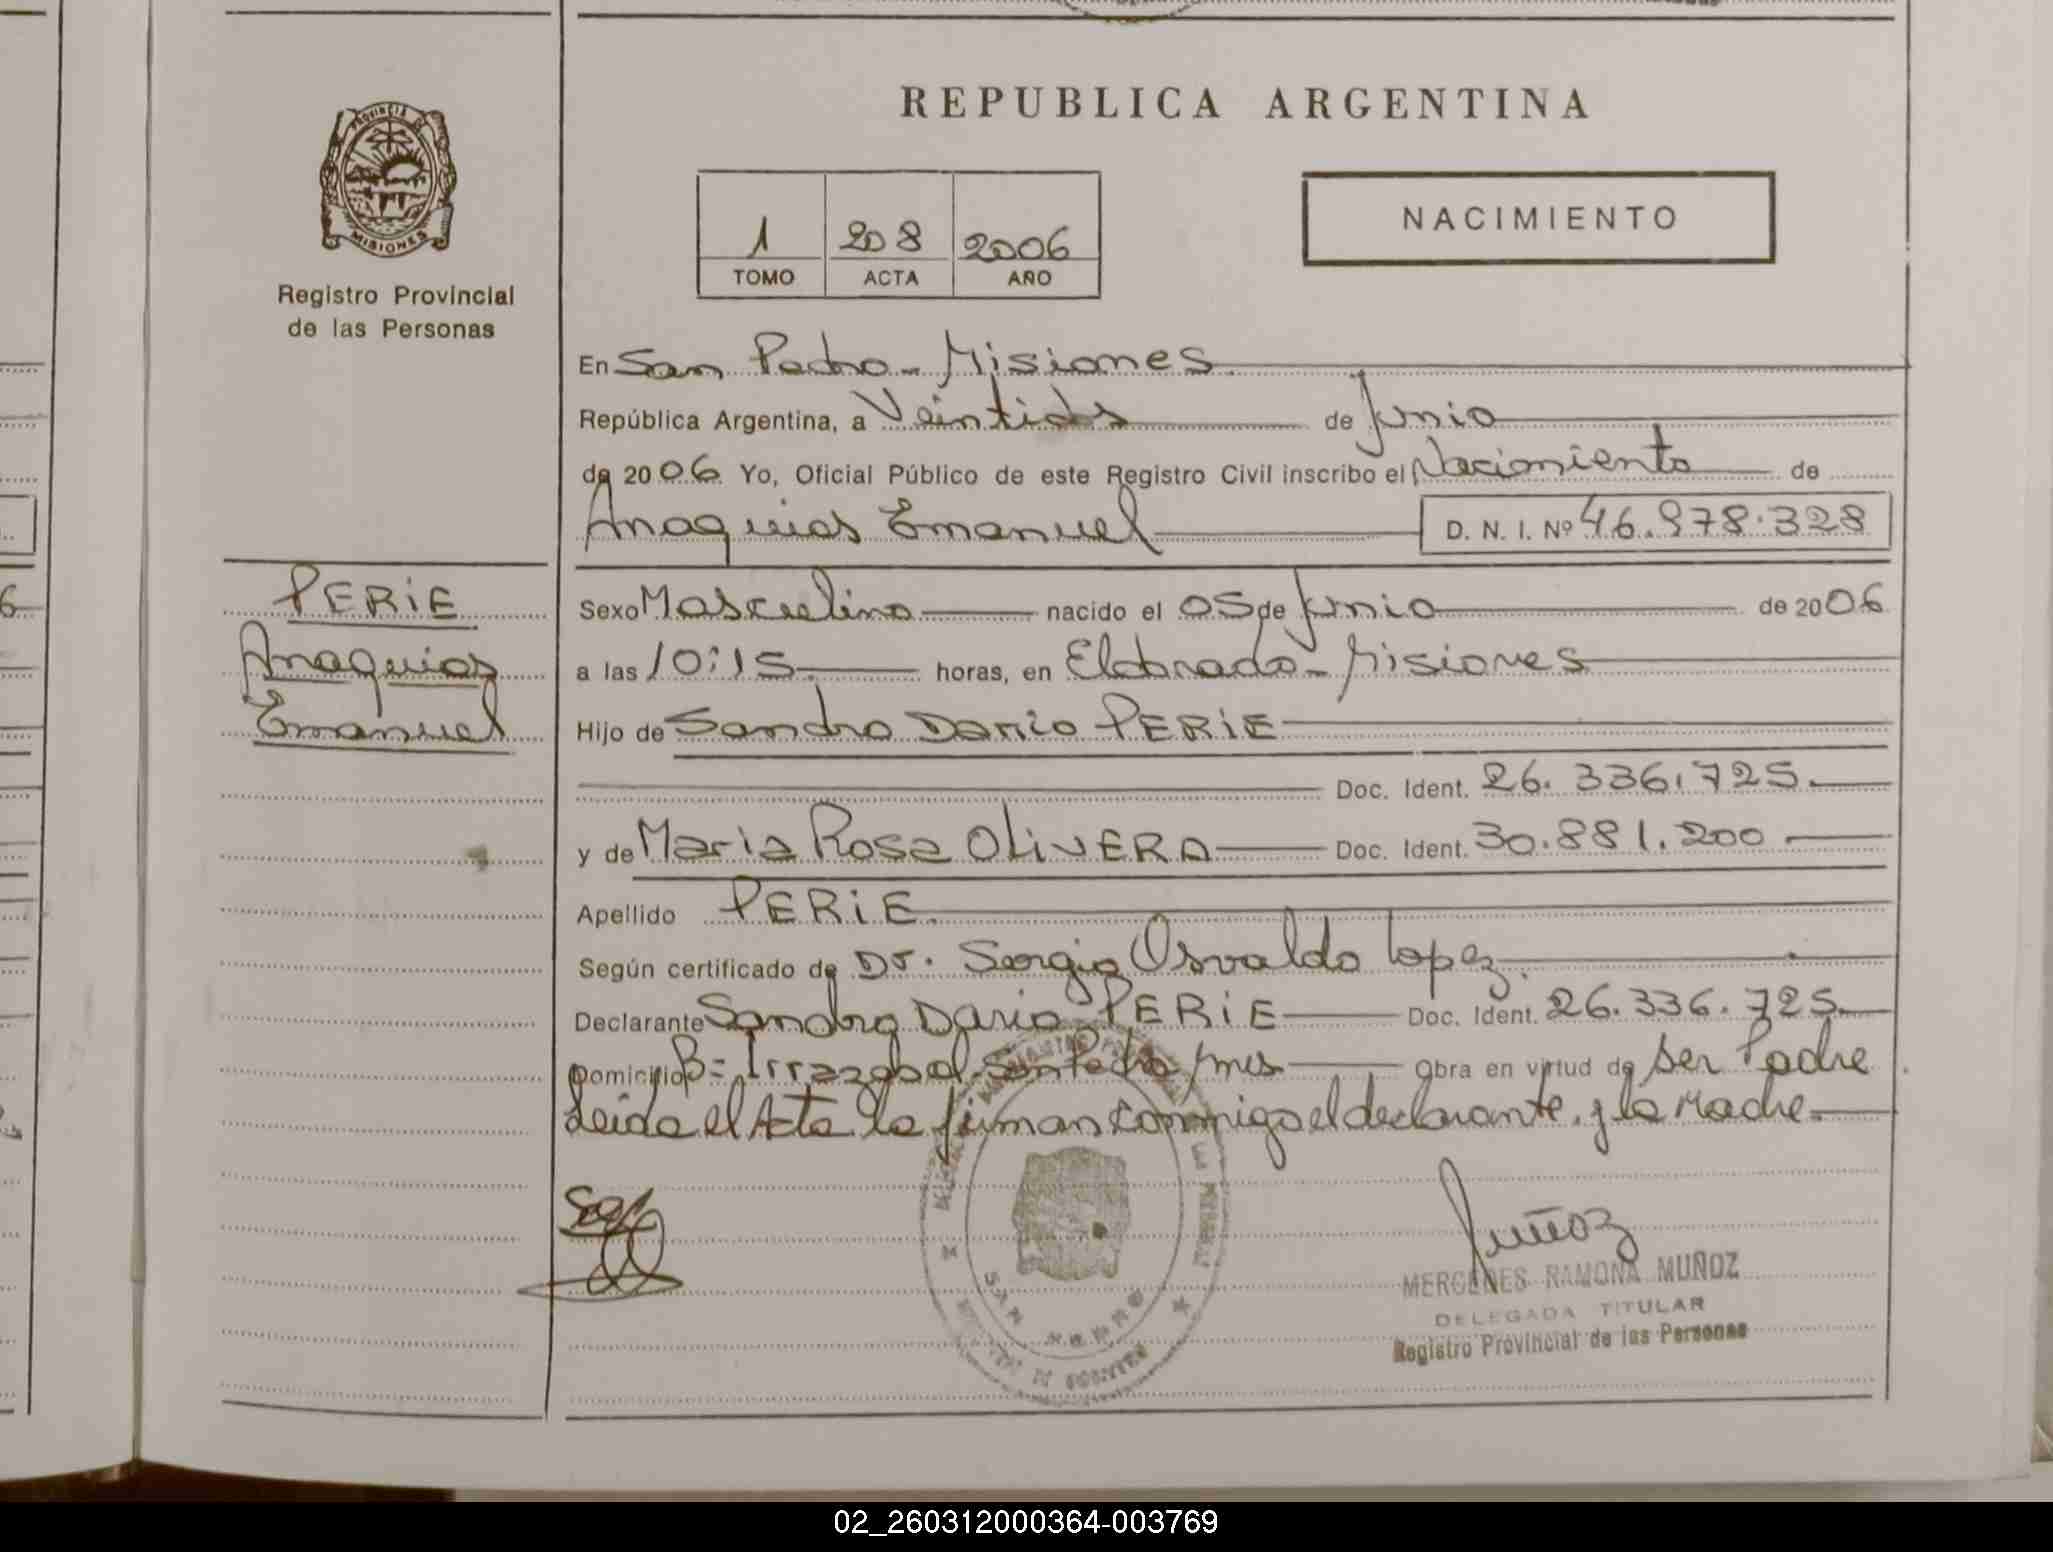 REPUBLICA ARGENTINA
PROVINCIA DE
MISIONES
Registro Provincial
de las Personas
1 208 2006
TOMO ACTA AÑO
NACIMIENTO
En San Pedro - Misiones
República Argentina, a Veintidos de Junio
de 2006 Yo, Oficial Público de este Registro Civil inscribo el Nacimiento de
Anaquias Emanuel D. N. I. Nº 46.978.328
PERiE
Anaquias
Emanuel
Sexo Masculino nacido el 05 de Junio de 2006
a las 10:15 horas, en Eldorado - Misiones
Hijo de Sandro Dario PERiE
Doc. Ident. 26.336.725
y de Maria Rosa OLiVERA Doc. Ident. 30.881.200
Apellido PERiE
Según certificado de Dr. Sergio Osvaldo Lopez
Declarante Sandro Dario PERiE Doc. Ident. 26.336.725
Domicilio Bº Irrazabal San Pedro Mns Obra en virtud de Ser Padre
Leida el Acta la firman conmigo el declarante y la Madre
Muñoz
MERCEDES RAMONA MUÑOZ
DELEGADA TITULAR
Registro Provincial de las Personas
SAN PEDRO
02_260312000364-003769